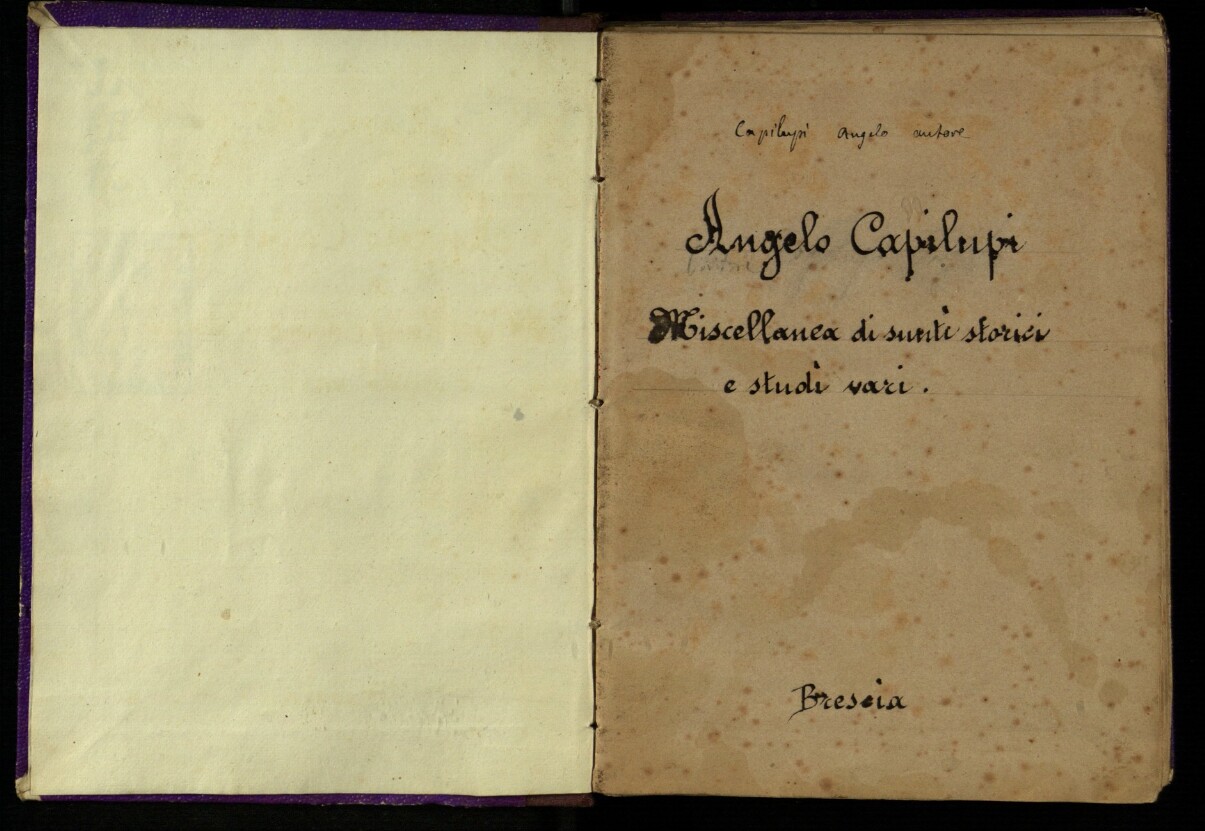 Capilupi Angelo autore
Angelo Capilupi
Miscellanea di sunti storici
e studi vari.
Brescia